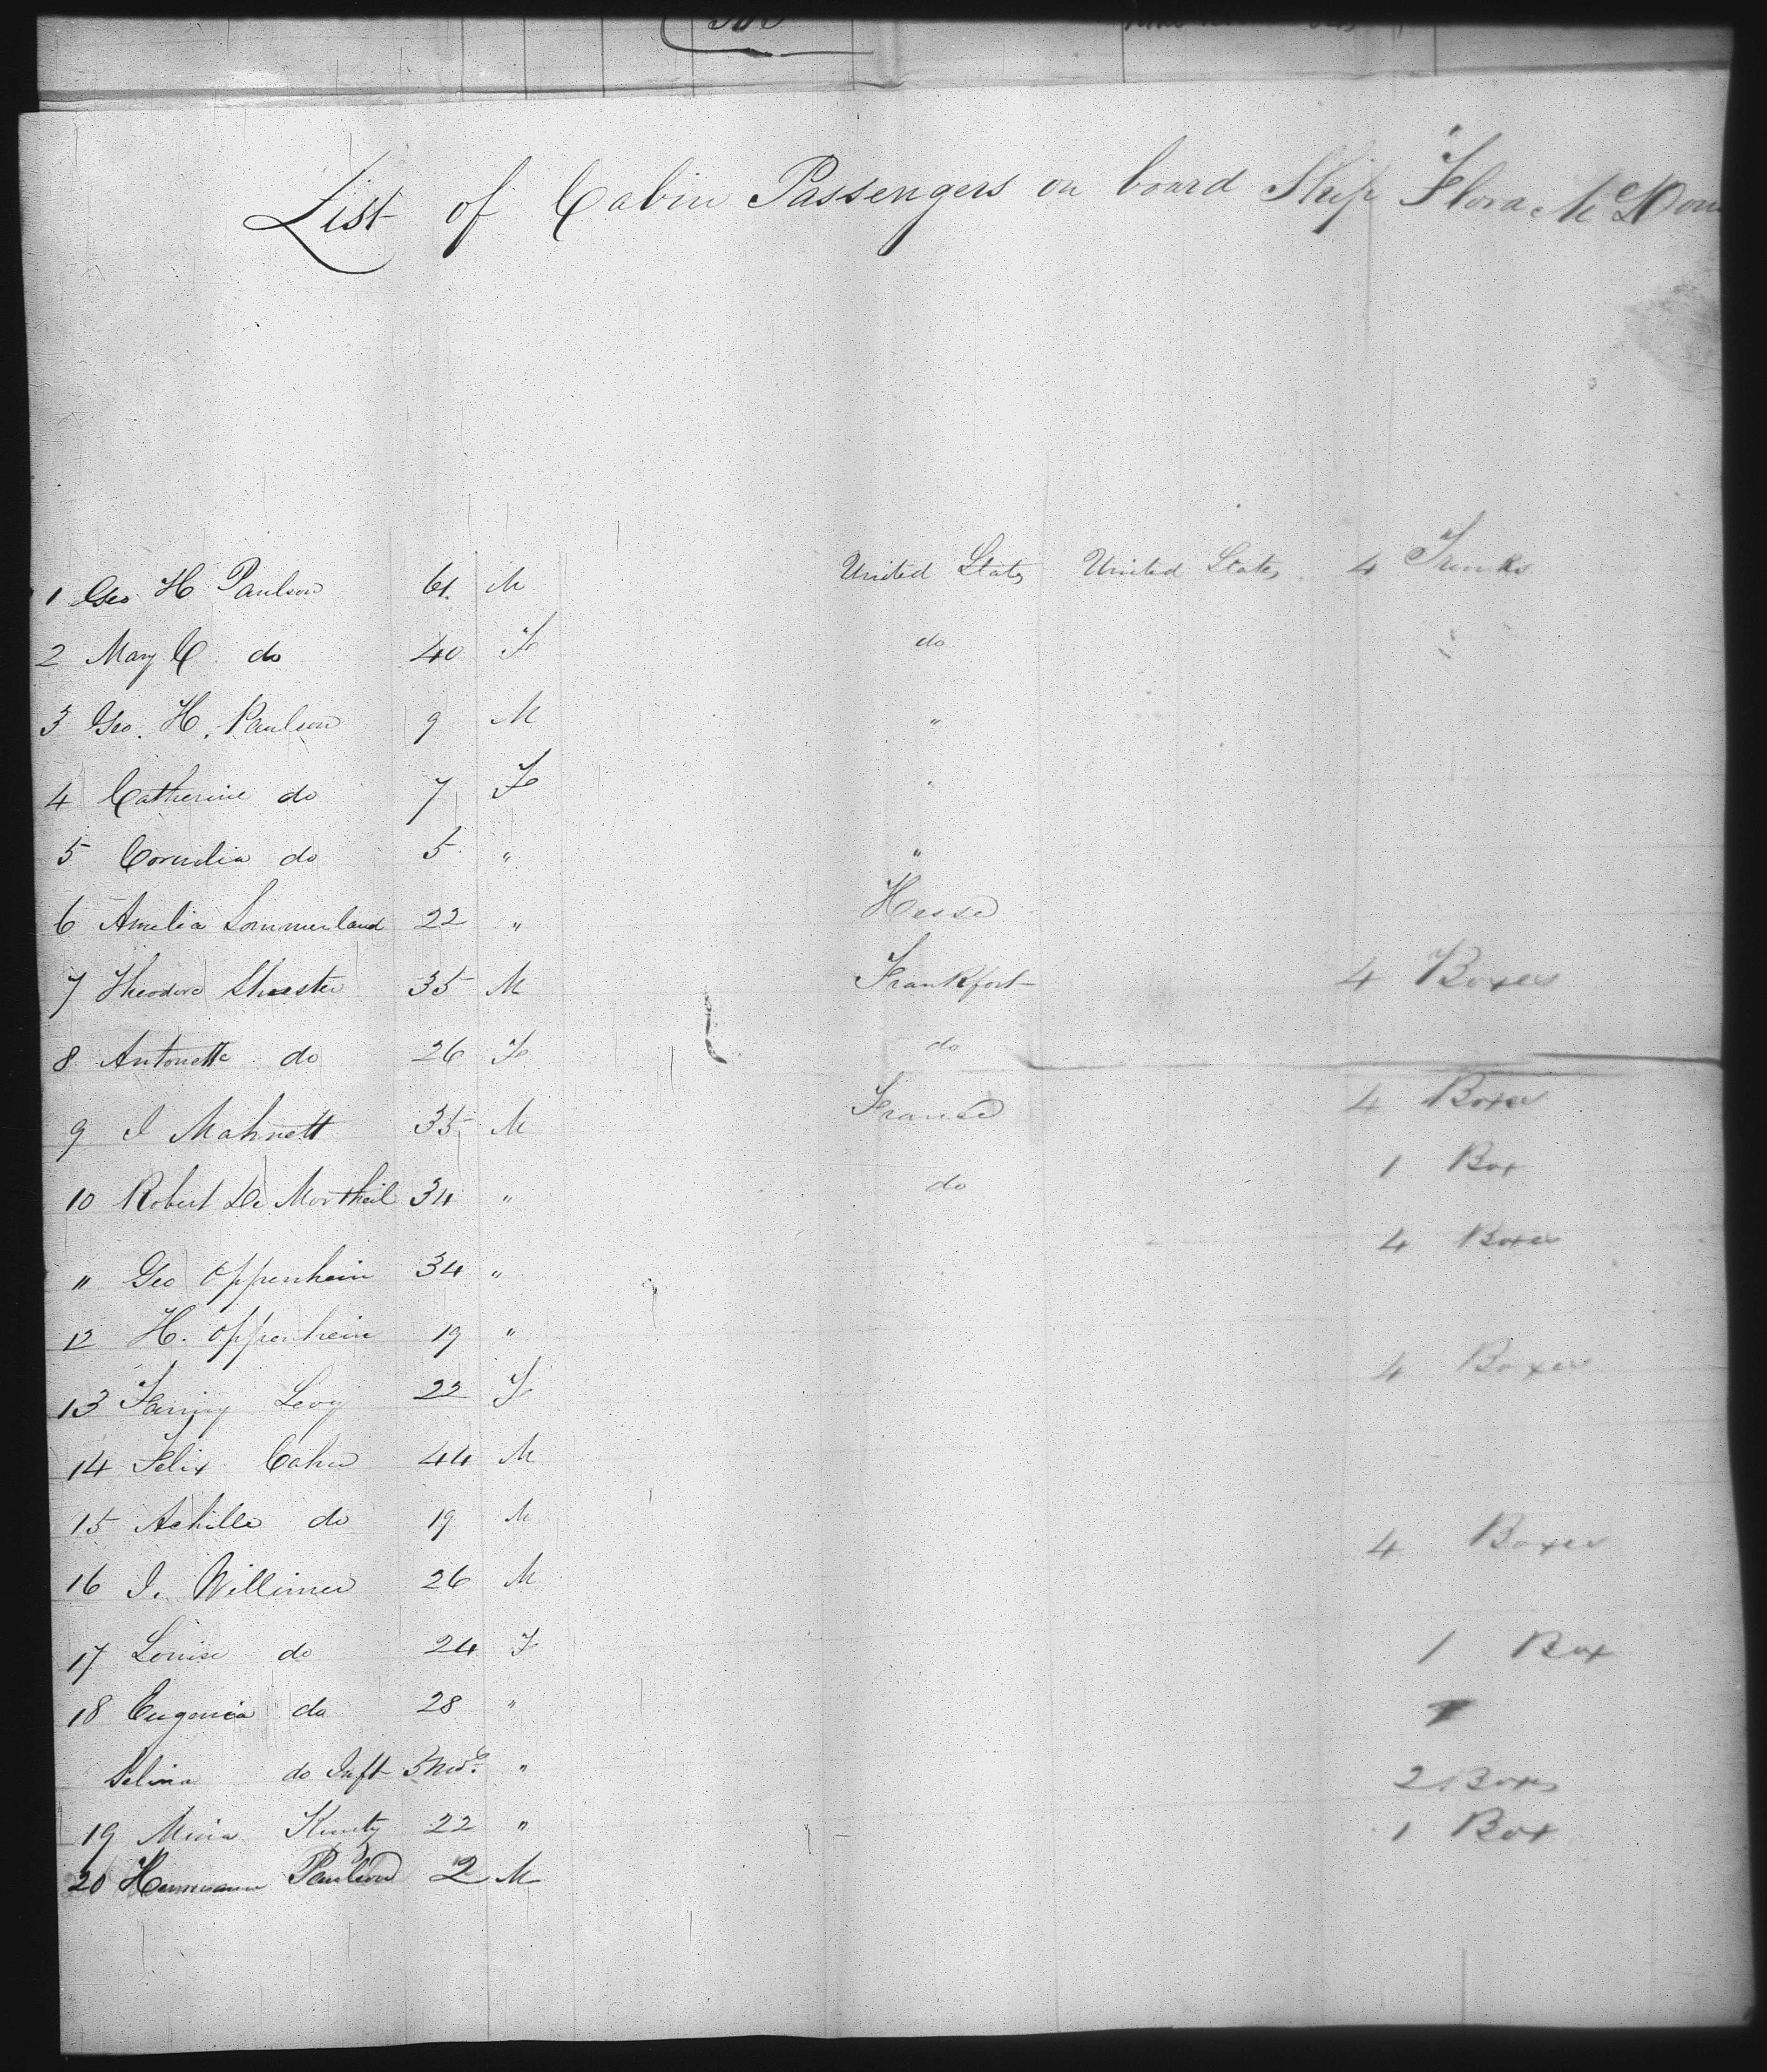 List of Cabin Passengers on board Ship "Flora McDon
1 Geo H Paulson 61 M United States United States 4 Trunks
2 Mary C. do 40 F do
3 Geo. H. Paulson 9 M "
4 Catherine do 7 F "
5 Cornelia do 5 " "
6 Amelia Sommerland 22 " Hesse
7 Theodore 35 M Frankfort 4 Boxes
8 Antonette do 26 F do
9 I Mahnett 35 M France 4 Boxes
10 Robert De Mortheil 34 " do 1 Box
" Geo Oppenheim 34 " 4 Boxes
12 H. Oppenheim 19 "
13 Fanny Levy 22 F 4 Boxes
14 Felix Cahn 44 M
15 Achille do 19 M
16 I. Willimer 26 M 4 Boxes
17 Louise do 24 F 1 Box
18 Eugenia do 28 "
Selina do Inft 3 Mos. " 2 Boxes
19 Mina 22 " 1 Box
20 Hermann Paulson 2 M